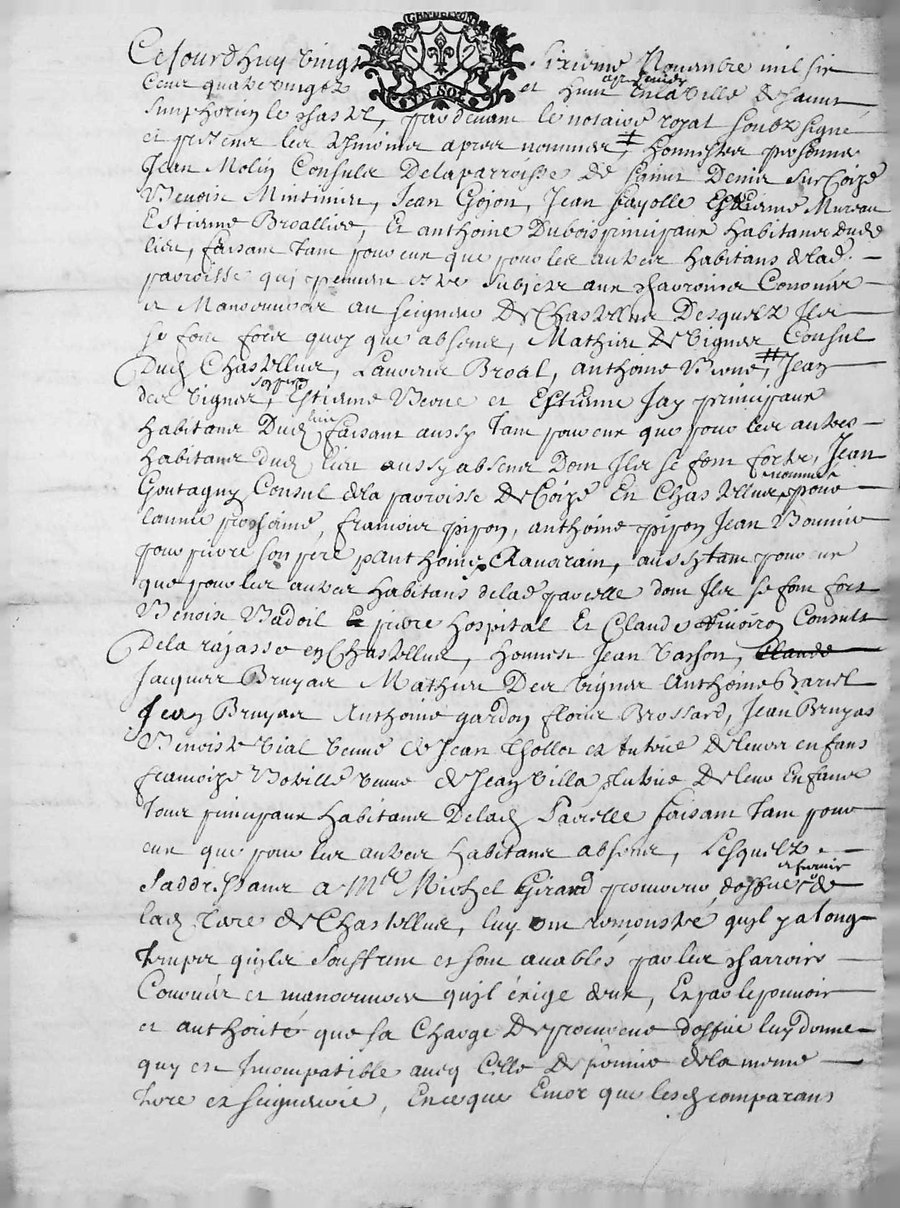 GEN DE LYON
UN SOL
Ce jourdhuy vingt sixieme Novembre mil six
cent quatre vingtz et huit apres midy en la ville de saint
simphorien le chastel, pardevant le notaire royal soubzsigné
et presentz les tesmoins apres nommes, # honneste personne
Jean Molin Consulz de la parroisse de saint Denis sur Coize
Benoist Mintinier, Jean Gojon, Jean fayolle Estienne Mureau
Estienne Broallier, et anthoine Dubois principaux habitans dudt
lieu, faisant tant pour eux que pour les autres habitans de lad.
parroisse qui peuvent estre subjetz aux charrois Corvées
et Manoeuvres au seigneur de Chastellus desquelz Ilz
se font fortz quoy que absens, Mathieu des Vignes Consul
dud Chastellus, Laurens Broal, anthoine Beone, # Jean
des Vignes, Estienne Beone et Estienne Jay principaux
habitans dud lieu faisant aussy tant pour eux que pour les autres
habitans dud lieu aussy absens dont Ilz se font fortz, Jean
Goutagny Consul de la parroisse de Coize En Chastellus nommé pour
lannée prochaine, francois pipon, anthoine pipon Jean Bonnier
pour pierre son pere anthoine Ravorain, aussy tant pour eux
que pour les autres habitans de lad parcelle dont Ilz se font fort
Benoist Badoil pierre hospital Et Claude Consulz
De la rajasse en Chastellus, honnest Jean basson, Claude
Jacques Bruyas Mathieu Des Vignes Anthoine Bariel
Jean Bruyas Anthoine gardon fleurs Brossard, Jean Bruyas
Benoiste Vial veuve de Jean Thollot et tutrice de leurs enfans
francoize Boville veuve de Jean Villa tutrice de leurs Enfans
Tous principaux habitans de lad Parcelle faisant tant pour
eux que pour les autres habitans absens, Lesquelz
saddressans a Mre Michel Girard procureur doffice et fermier de
lad terre de Chastellus, luy ont remonstré quyl y a long
temps quylz souffrent et sont acablés par les charrois
Corvées et manoeuvres quyl exige deux, Et par le pouvoir
et authorité que sa charge de procureur doffice luy donne
quy est Incompatible avecq Celle de fermier de la mesme
terre et seigneurie, En ce que Encor que lesd comparans